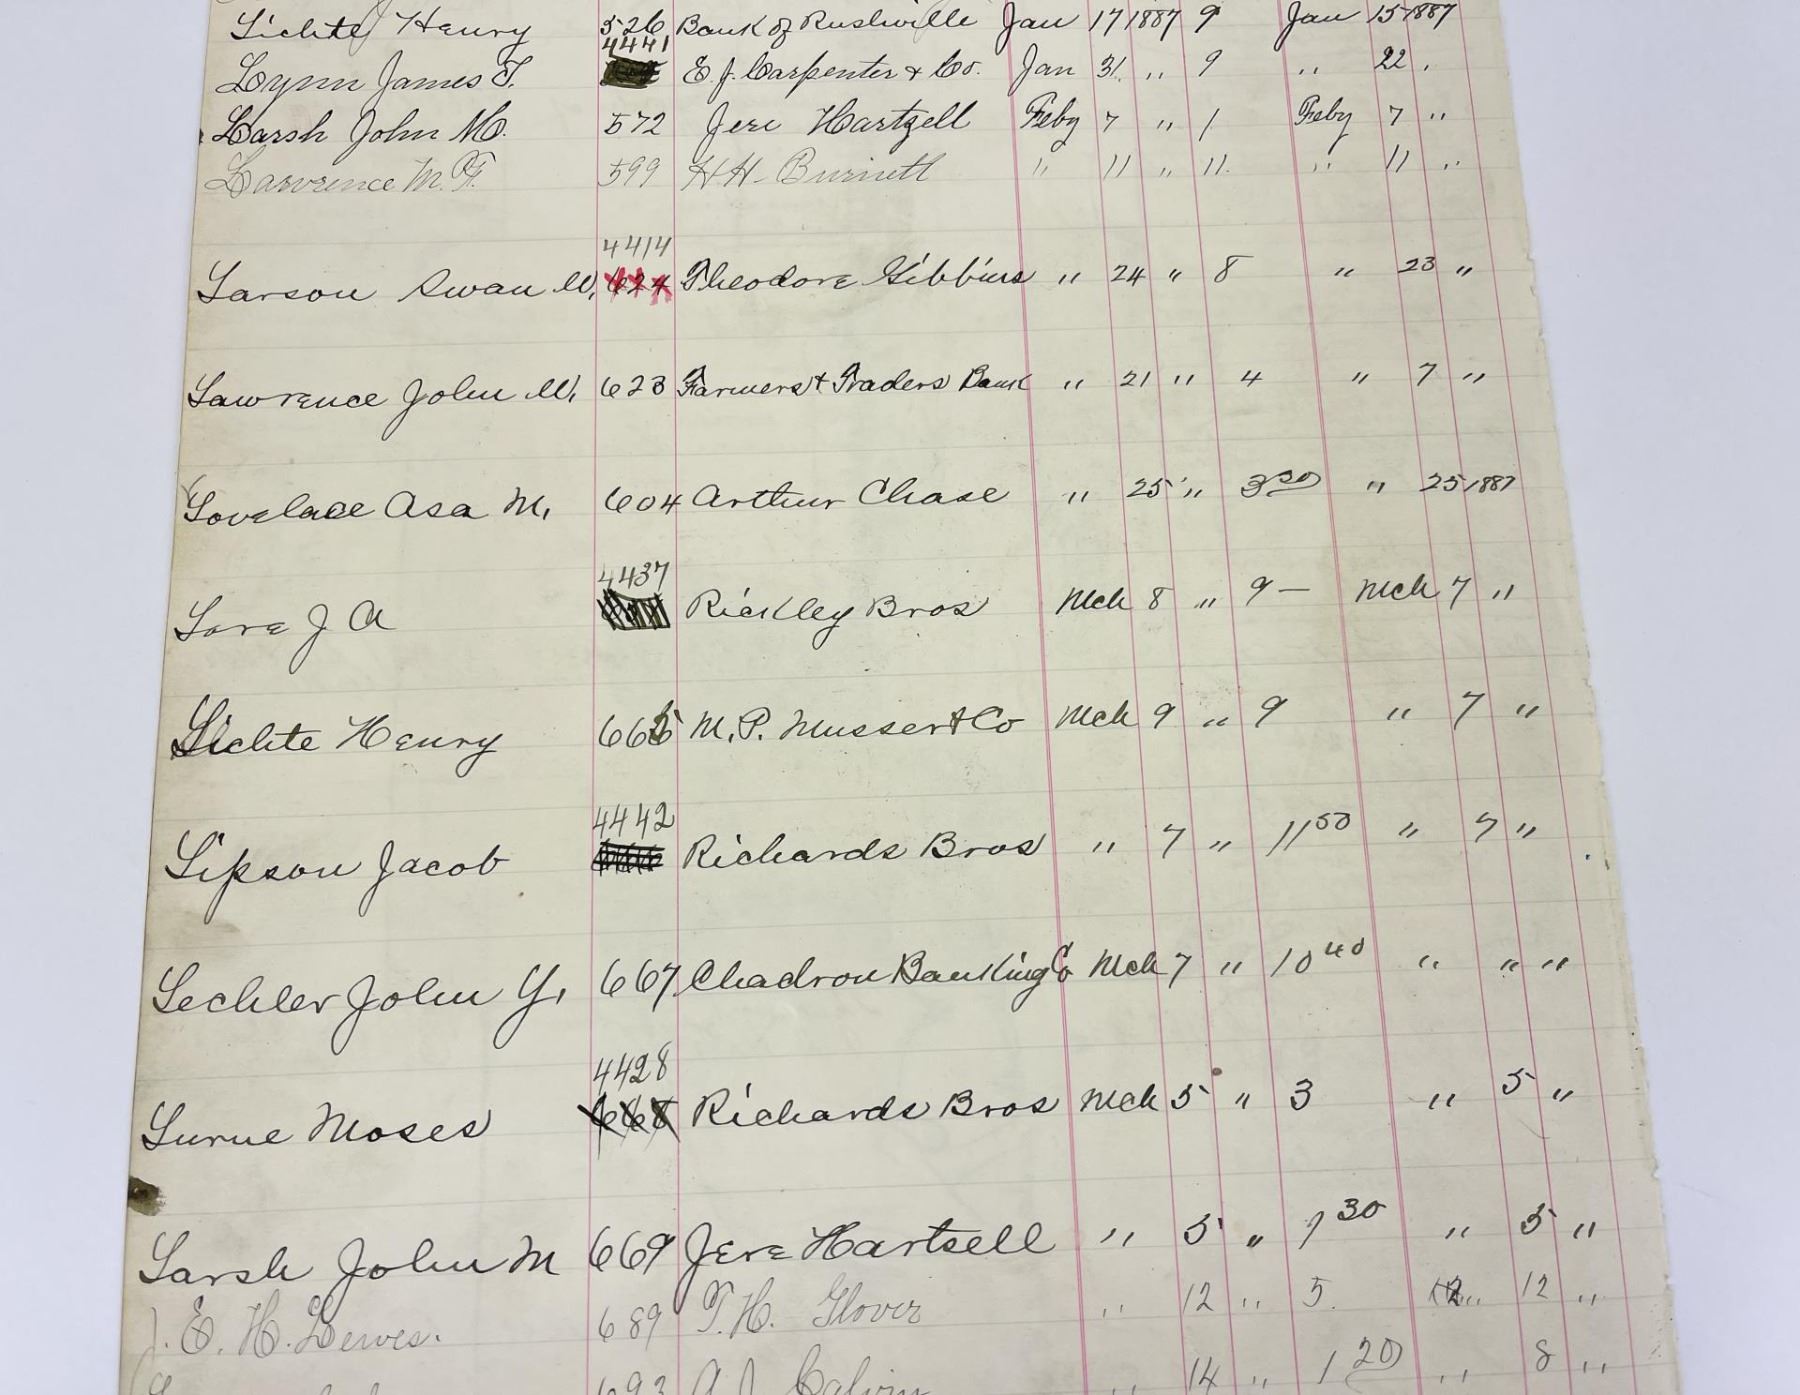 Lichte Henry 526 Bank of Rushville Jan 17 1887 9 Jan 15 1887
4441
Lynn James T. E. J. Carpenter & Co. Jan 31 " 9 " 22 "
Larsh John M. 572 Jere Hartzell Feby 7 " 1 Feby 7 "
Lawrence M. F. 599 H H Burnett " 11 " 11. " 11 "
4414
Larson Swan W. 624 Theodore Gibbins " 24 " 8 " 23 "
Lawrence John W. 623 Farmers & Traders Bank " 21 " 4 " 7 "
Lovelace Asa M. 604 Arthur Chase " 25 " 3 50 " 25 1887
4437
Love J A Rickley Bros Mch 8 " 9 — Mch 7 "
Lichte Henry 665 M. P. Musser & Co Mch 9 " 9 " 7 "
4442
Lipson Jacob Richards Bros " 7 " 11 50 " 7 "
Lechler John Y. 667 Chadron Banking Co Mch 7 " 10 40 " " "
4428
Lurue Moses 668 Richards Bros Mch 5 " 3 " 5 "
Larsh John M 669 Jere Hartsell " 5 " 1 30 " 5 "
J. E. H. Dewes. 689 T. H. Glover " 12 " 5. " 12 "
693 A J Calvin " 14 " 1 20 " 8 "